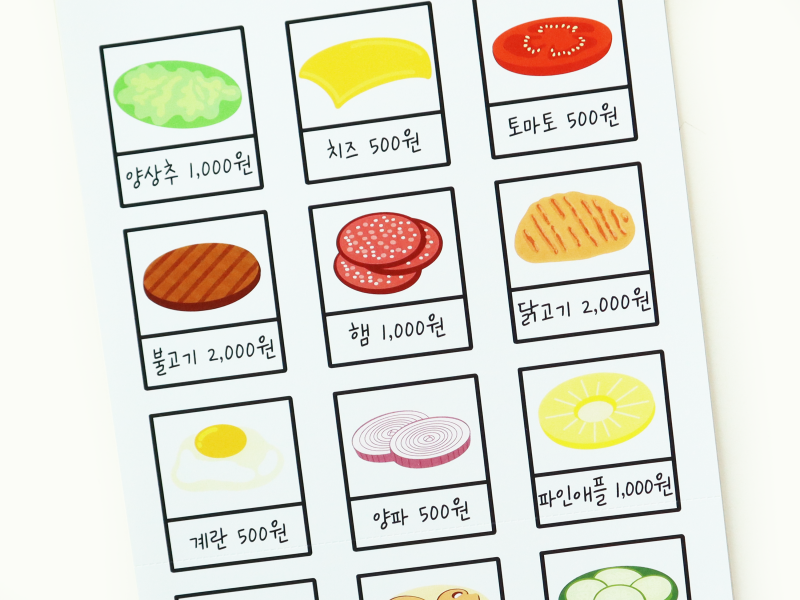 양상추 1,000원
치즈 500원
토마토 500원
불고기 2,000원
햄 1,000원
닭고기 2,000원
계란 500원
양파 500원
파인애플 1,000원